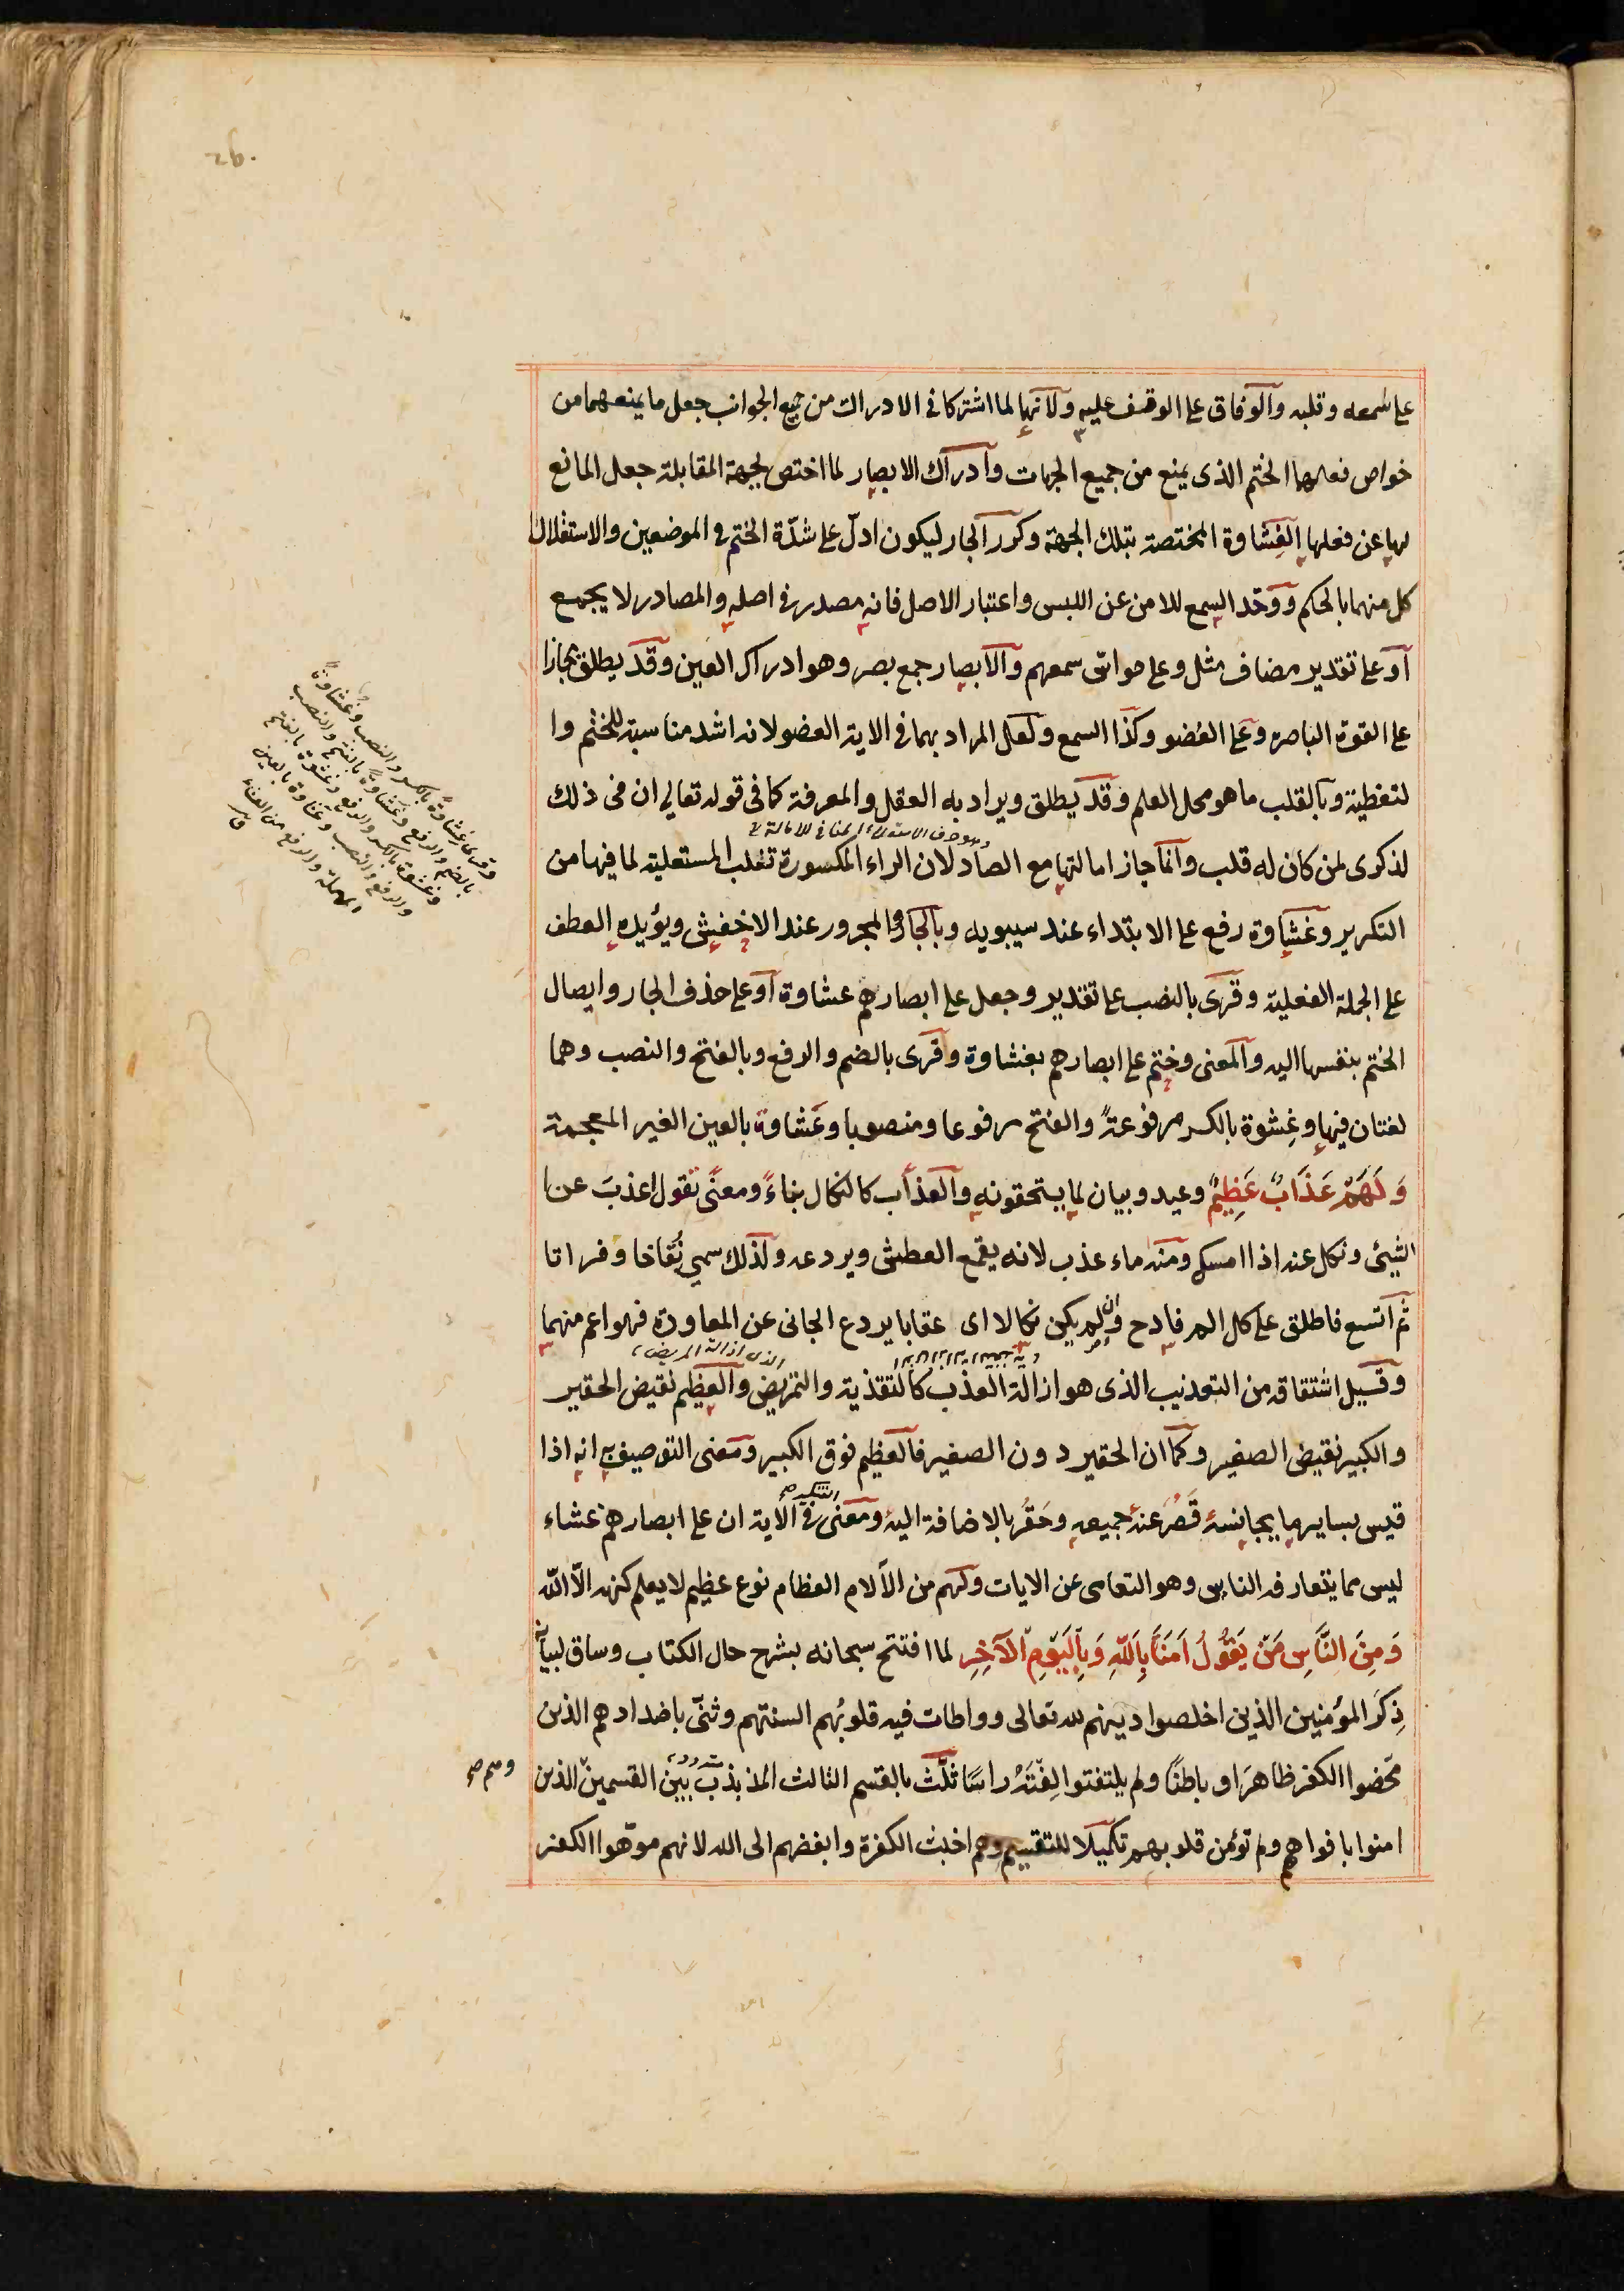 على سمعه وقلبه والوفاق على الوقف عليه ولانهما لما اشتركا في الادراك من جميع الجوانب جعل ما يمنعهما من
خواص فعلهما الختم الذى يمنع من جميع الجهات وادراك الابصار لما اختص بجهة المقابلة جعل المانع
لها عن فعلها الغِشاوة المختصة بتلك الجهة وكرر الجار ليكون ادلّ على شدّة الختم في الموضعين والاستقلال
كل منهما بالحكم ووحّد السمع للامن عن اللبس واعتبار الاصل فانه مصدر في اصله والمصادر لا يجمع
او على تقدير مضاف مثل وعلى حواسّ سمعهم والابصار جمع بصر وهو ادراك العين وقد يطلق مجازا
على القوة الباصره وعلى العُضو وكذا السمع ولعل المراد بهما في الاية العضو لانه اشد مناسبة للختم وا
لتغطية وبالقلب ما هو محل العلم وقد يطلق ويراد به العقل والمعرفة كما فى قوله تعالى ان فى ذلك
لذكرى لمن كان له قلب وانما جاز امالتها مع الصاد لان الراء المكسورة تغلب المستعلية لما فيها من
التكرير وغشاوة رفع على الابتداء عند سيبويه وبالجار والمجرور عند الاخفش ويؤيده العطف
على الجملة الفعلية وقرى بالنصب على تقدير وجعل على ابصارهم غشاوة او على حذف الجار وايصال
الختم بنفسها اليه والمعنى وختم على ابصارهم بغشاوة وقرى بالضم والرفع وبالفتح والنصب وهما
لغتان فيها وغِشوة بالكسر مرفوعةً والفتح مرفوعا ومنصوبا وعَشاوة بالعين الغير المعجمة
وَلَهُمْ عَذَابٌ عَظِيمٌ وعيد وبيان لما يستحقونه والعذاب كالنكال بناءً ومعنًى تقول اعذبَ عن ا
الشيئ ونكل عنه اذا امسك ومنه ماء عذب لانه يقمع العطش ويردعه ولذلك سمي نُقاخا وفراتا
ثم اتسع فاطلق على كل الم فادح وان لم يكن نكالا اى عقابا يردع الجانى عن المعاودة فهو اعم منهما
وقيل اشتقاقه من التعذيب الذى هو ازالة العذب كالتقذية والتمريض والعظيم نقيض الحقير
والكبير نقيض الصغير وكما ان الحقير دون الصغير فالعظيم فوق الكبير ومعنى التوصيف به انه اذا
قيس بساير ما يجانسه قَصُر عنه جميعه وحَقُر بالاضافة اليه ومعنى التنكير صح في الاية ان على ابصارهم غشاء
ليس مما يتعارفه الناس وهو التعامى عن الايات ولهم من الآلام العظام نوع عظيم لا يعلم كنهه الّا الله
وَمِنَ النَّاسِ مَنْ يَقُولُ اٰمَنَّا بِاللهِ وَبِالْيَوْمِ الْآخِرِ لما افتتح سبحانه بشرح حال الكتاب وساق لبيانه
ذِكرَ المؤمنين الذين اخلصوا دينهم لله تعالى وواطات فيه قلوبُهم السنتهم وثنّى باضدادهم الذين
محّضوا الكفر ظاهرا وباطنًا ولم يلتفتوا لِفتَهُ راسًا ثلّث بالقسم الثالث المذبذب بين القسمين الذين
وهم صح
امنوا بافواههم ولم تؤمن قلوبهم تكميلا للتقسيم وهم اخبث الكفرة وابغضهم الى الله لانهم موّهوا الكفر
وقرى غِشاوةً بالكسر والنصب وغُشاوةٌ
بالضم والرفع وغَشاوةً بالفتح والنصب
وغشوة بالكسر والرفع وغشوة بالفتح
والرفع والنصب وعشاوة بالعين
المهملة والرفع من العشاء